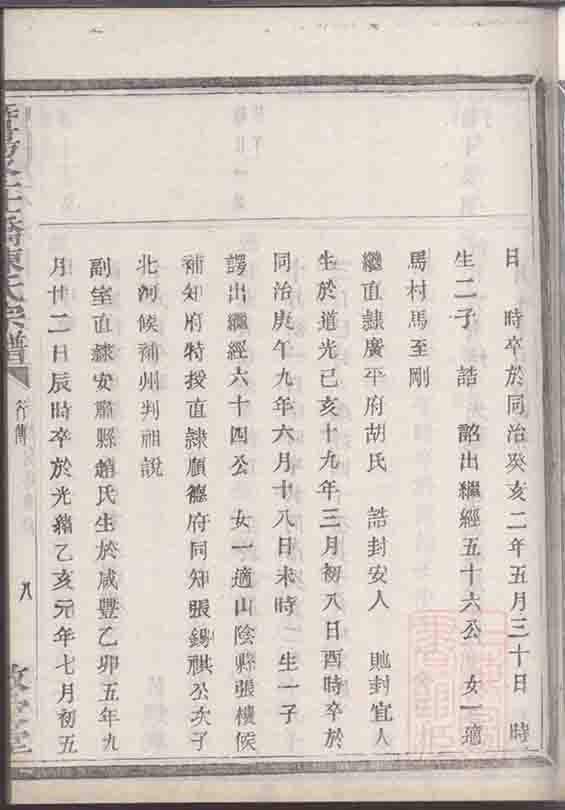 日　時卒於同治癸亥二年五月三十日　時
生二子　誥　詔出繼經五十六公　女一適
馬村馬至剛
繼直隸廣平府胡氏　誥封安人　貤封宜人
生於道光己亥十九年三月初八日酉時卒於
同治庚午九年六月十八日未時　生一子
諤出繼經六十四公　女一適山陰縣張櫰候
補知府特授直隸順德府同知張錫祺公次子
北河候補州判祖說
副室直隸安肅縣趙氏生於咸豐乙卯五年九
月廿二日辰時卒於光緒乙亥元年七月初五
橋陳氏宗譜
行傳
八